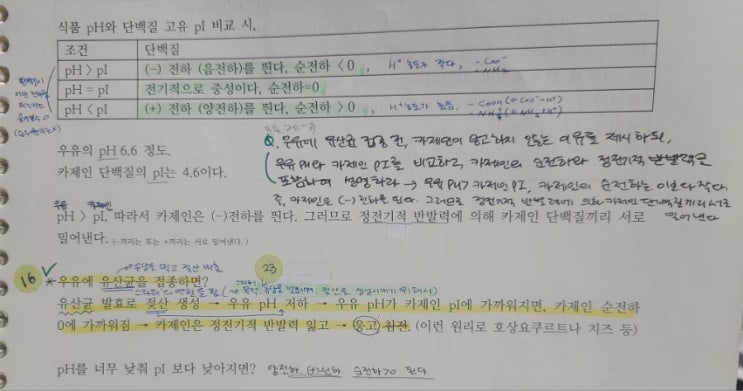 식품 pH와 단백질 고유 pI 비교 시,
조건 단백질
pH > pI (-) 전하 (음전하)를 띤다, 순전하 <0 , H⁺ 농도 작다, -COO⁻ -NH₂
pH = pI 전기적으로 중성이다, 순전하=0
pH < pI (+) 전하 (양전하)를 띤다, 순전하 >0 , H⁺농도가 높음, -COOH(←COO⁻+H⁺)
Q. 우유에 유산균 접종 전, 카제인이 응고하지 않는 이유를 제시하되,
우유의 pH 6.6 정도.
우유 pH와 카제인 pI를 비교하고, 카제인의 순전하와 정전기적 반발력을
카제인 단백질의 pI는 4.6이다.
포함하여 설명하라 → 우유 pH > 카제인 pI, 카제인의 순전하는 0보다 작다
즉, 카제인은 (-)전하를 띤다. 그러므로 정전기적 반발력에 의해 카제인 단백질끼리 서로
밀어낸다
우유 카제인
pH > pI, 따라서 카제인은 (-)전하를 띤다. 그러므로 정전기적 반발력에 의해 카제인 단백질끼리 서로
밀어낸다. (-끼리는 또는 +끼리는 서로 밀어낸다.)
유당을 먹고 젖산 배출
16 * 우유에 유산균을 접종하면? 23
스타터
유산균 발효로 젖산 생성 → 우유 pH 저하 → 우유 pH가 카제인 pI에 가까워지면, 카제인 순전하
0에 가까워짐 → 카제인은 정전기적 반발력 잃고 → 응고 침전. (이런 원리로 호상요쿠르트나 치즈 등)
pH를 너무 낮춰 pI 보다 낮아지면? 양전하 (+)전하 순전하>0 띤다